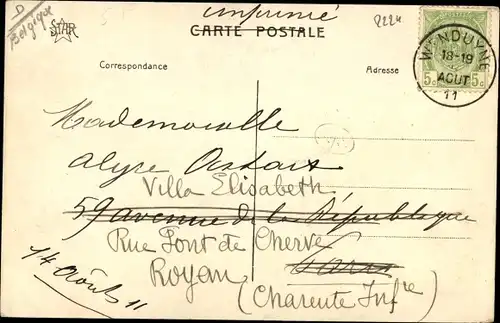 D
Belgique
STAR
imprimé
8224
CARTE POSTALE
Correspondance
Adresse
WENDUYNE
18-19
AOUT
11
5c 5c
Mademoiselle
Alyse
Villa Elisabeth
59 avenue de la République
Rue Font de Cherve
Paris
Royan
(Charente Infre)
14 Août 11